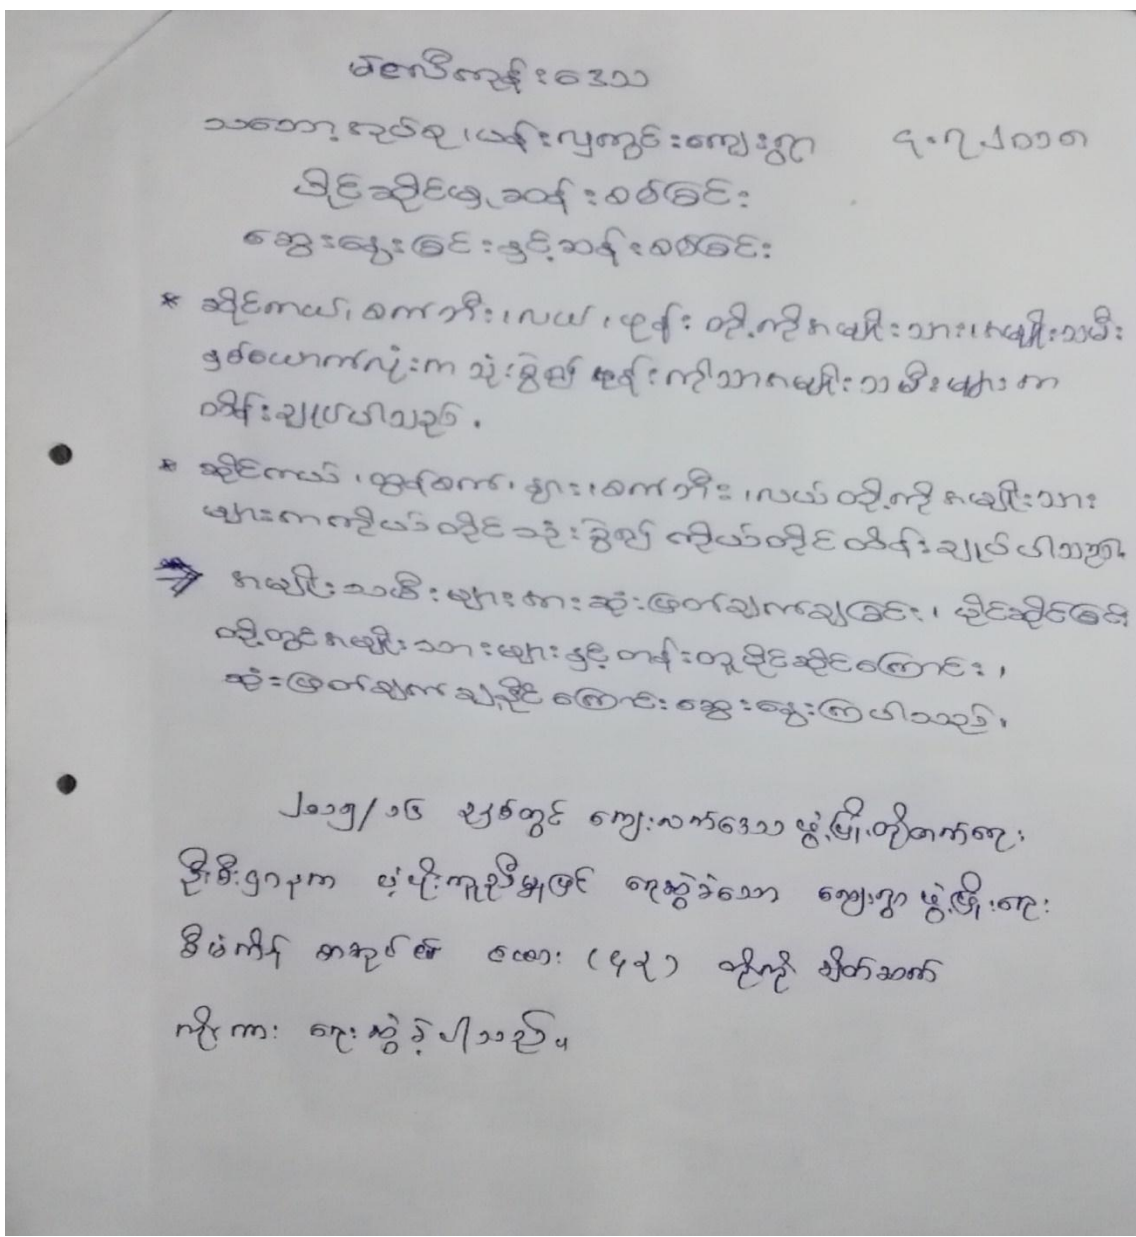 မင်္ဂလီကုန်းဒေသ
သဘော့အုပ်စု၊ ပန်းလှကွင်းကျေးရွာ ၄.၇.၂၀၁၈
ပိုင်ဆိုင်မှု ဆန်းစစ်ခြင်း
ဆွေးနွေးခြင်းနှင့်ဆန်းစစ်ခြင်း
* ဆိုင်ကယ်၊ စက်ဘီး၊ လယ်၊ ဖုန်း တို့ကိုအမျိုးသား၊ အမျိုးသမီး
နှစ်ယောက်လုံးက သုံးစွဲ၍ ဖုန်းကိုသာအမျိုးသမီးများက
ထိန်းချုပ်ပါသည်.
* ဆိုင်ကယ်၊ ထွန်စက်၊ နွား၊ စက်ဘီး၊ လယ် တို့ကို အမျိုးသား
များကကိုယ်တိုင်သုံးစွဲ၍ ကိုယ်တိုင်ထိန်းချုပ်ပါသည်။
⇒ အမျိုးသမီးများအားဆုံးဖြတ်ချက်ချခြင်း၊ ပိုင်ဆိုင်ခြင်း
တို့တွင်အမျိုးသားများနှင့်တန်းတူပိုင်ဆိုင်ကြောင်း၊
ဆုံးဖြတ်ချက်ချနိုင်ကြောင်းဆွေးနွေးကြပါသည်.
၂၀၁၅/၁၆ ခုနှစ်တွင် ကျေးလက်ဒေသ ဖွံ့ဖြိုးတိုးတက်ရေး
ဦးစီးဌာနက ပံ့ပိုးကူညီမှုဖြင့် ရေးဆွဲခဲ့သော ကျေးရွာ ဖွံ့ဖြိုးရေး
စီမံကိန်း စာအုပ်၏ ဇယား (၄၃) တို့ကို ချိတ်ဆက်
ကိုးကား ရေးဆွဲခဲ့ပါသည်။